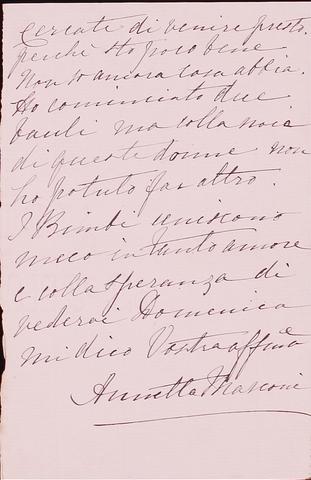 Cercate di venire presto.
perchè sto poco bene
Non so ancora cosa abbia.
Ho cominciato due
bauli ma colla noia
di queste donne non
ho potuto far altro.
I Bimbi uniscono
meco in tanto amore
e colla speranza di
vederci Domenica
mi dico Vostra affma
Annetta Marconi